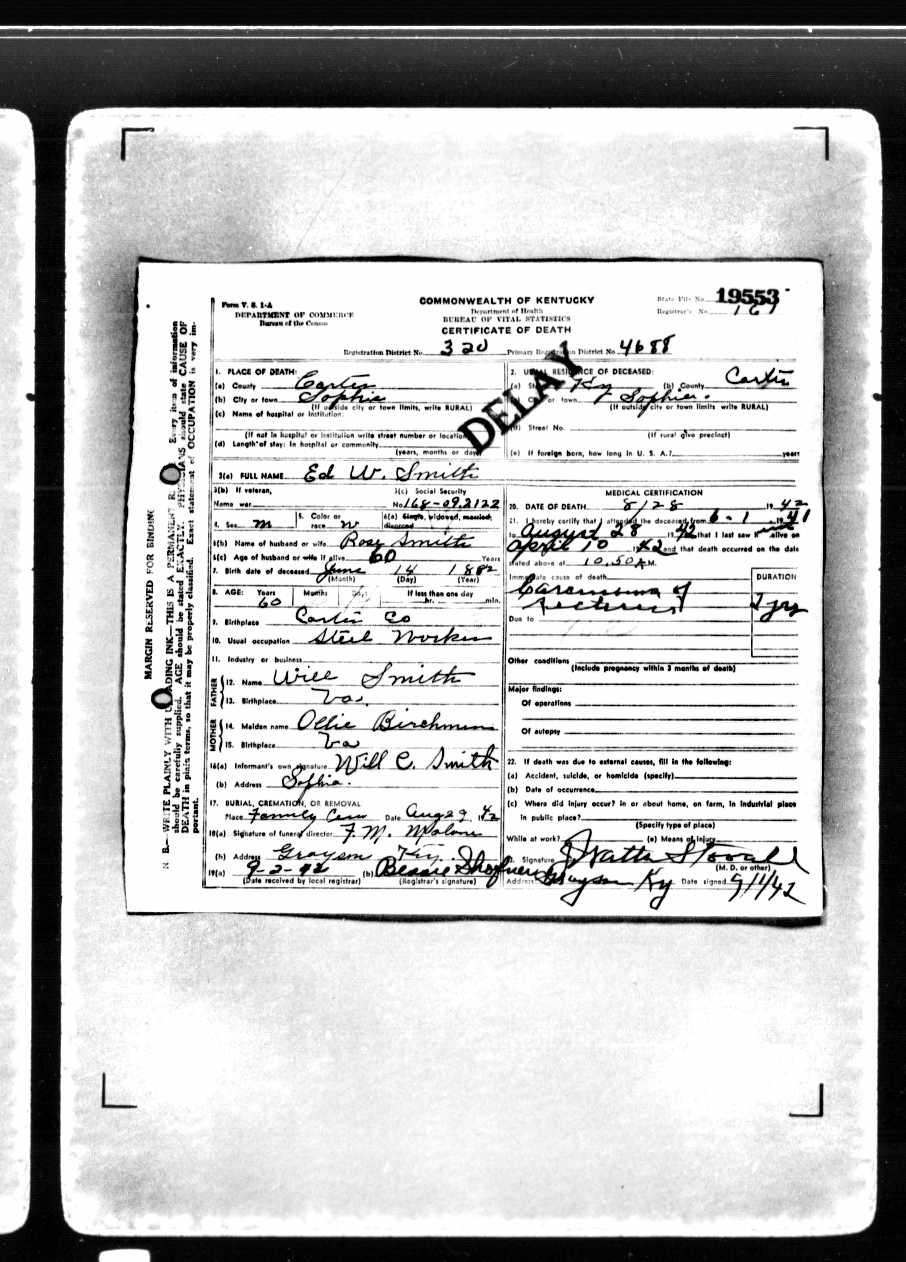 Form V. S. 1-A
DEPARTMENT OF COMMERCE
Bureau of the Census
COMMONWEALTH OF KENTUCKY
Department of Health
BUREAU OF VITAL STATISTICS
CERTIFICATE OF DEATH
State File No. 19553
Registrar's No. 161
Registration District No. 320 Primary Registration District No. 4688
DELAY
1. PLACE OF DEATH:
(a) County Carter
(b) City or town Sophie
(If outside city or town limits, write RURAL)
(c) Name of hospital or institution:
(If not in hospital or institution write street number or location)
(d) Length of stay: In hospital or community
(years, months or days)
2. USUAL RESIDENCE OF DECEASED:
(a) State Ky (b) County Carter
City or town Sophie.
(If outside city or town limits write RURAL)
(d) Street No.
(If rural give precinct)
(e) If foreign born, how long in U. S. A.? years
3(a) FULL NAME Ed W. Smith
3(b) If veteran, 3(c) Social Security
Name war No. 168-09.2122
4. Sex M 5. Color or race W 6(a) Single, widowed, married, divorced
6(b) Name of husband or wife Rose Smith
6(c) Age of husband or wife if alive 60 Years
7. Birth date of deceased June 14 1882
(Month) (Day) (Year)
8. AGE: Years Months Days If less than one day
60 hr. min.
9. Birthplace Carter Co
10. Usual occupation Steel Worker
11. Industry or business
FATHER
12. Name Will Smith
13. Birthplace Va.
MOTHER
14. Maiden name Ollie Birchmun
15. Birthplace Va
16(a) Informant's own signature Will C. Smith
(b) Address Sophie.
17. BURIAL, CREMATION, OR REMOVAL
Place Family Cem Date Aug 29 1942
18(a) Signature of funeral director F. M. Malone
(b) Address Grayson Ky.
19(a) 9-2-42 (b) Bessie Shofner
(Date received by local registrar) (Registrar's signature)
MEDICAL CERTIFICATION
20. DATE OF DEATH 8/28 1942
21. I hereby certify that I attended the deceased from 6-1 1941
to August 28 1942 that I last saw alive on
April 10 1942 and that death occurred on the date
stated above at 10.50 A M.
Immediate cause of death DURATION
Carcinoma of
rectum 2 yrs
Due to
Other conditions
(Include pregnancy within 3 months of death)
Major findings:
Of operations
Of autopsy
22. If death was due to external causes, fill in the following:
(a) Accident, suicide, or homicide (specify)
(b) Date of occurrence
(c) Where did injury occur? in or about home, on farm, in industrial place
in public place?
(Specify type of place)
While at work? (e) Means of injury
Signature Watts Stovall
(M. D. or other)
Address Grayson Ky Date signed 9/1/42
MARGIN RESERVED FOR BINDING
N. B.—WRITE PLAINLY WITH UNFADING INK—THIS IS A PERMANENT R. Every item of information
should be carefully supplied. AGE should be stated EXACTLY. PHYSICIANS should state CAUSE OF
DEATH in plain terms, so that it may be properly classified. Exact statement of OCCUPATION is very im-
portant.